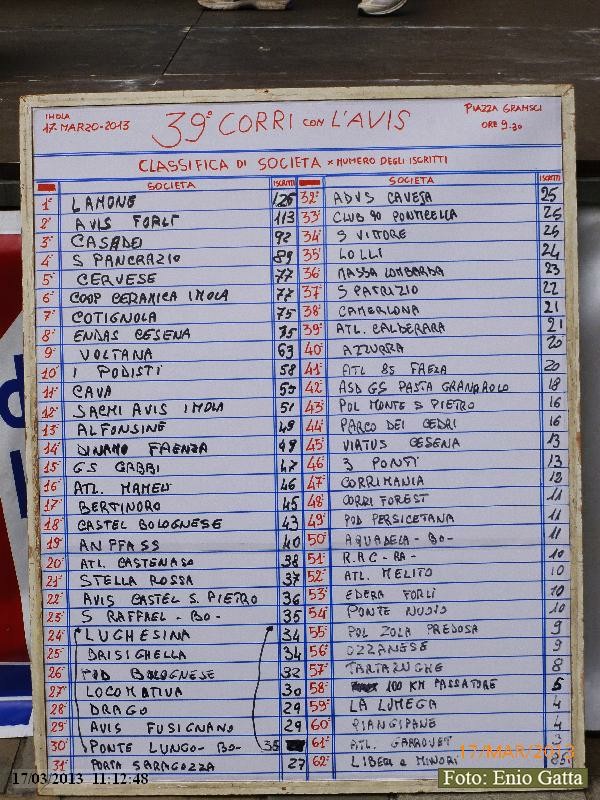 IMOLA
17-MARZO-2013
39° CORRI CON L'AVIS
PIAZZA GRAMSCI
ORE 9.30
CLASSIFICA DI SOCIETA x NUMERO DEGLI ISCRITTI
SOCIETA ISCRITTI
1° LAMONE 126
2° AVIS FORLÌ 113
3° CASADEO 92
4° S PANCRAZIO 89
5° CERVESE 77
6° COOP CERAMICA IMOLA 77
7° COTIGNOLA 75
8° ENDAS CESENA 75
9° VOLTANA 63
10° I PODISTI 58
11° CAVA 55
12° SACMI AVIS IMOLA 51
13° ALFONSINE 49
14° DINAMO FAENZA 49
15° GS GABBI 47
16° ATL. MAMELI 46
17° BERTINORO 45
18° CASTEL BOLOGNESE 43
19° ANPFASS 40
20° ATL. CASTENASO 38
21° STELLA ROSSA 37
22° AVIS CASTEL S. PIETRO 36
23° S RAFFAEL - BO - 35
24° LUGHESINA 34
25° BRISIGHELLA 34
26° POD BOLOGNESE 32
27° LOCOMOTIVA 30
28° DRAGO 29
29° AVIS FUSIGNANO 29
30° PONTE LUNGO - BO- 35
31° PORTA SARAGOZZA 27
SOCIETA ISCRITTI
32° ADVS CAVEJA 25
33° CLUB 90 PONTICELLA 25
34° S VITTORE 25
35° LOLLI 24
36° MASSA LOMBARDA 23
37° S PATRIZIO 22
38° CAMERLONA 21
39° ATL. CALDERARA 21
40° AZZURRA 20
41° ATL 85 FAEZA 20
42° ASD GS PASTA GRANAROLO 18
43° POL MONTE S PIETRO 16
44° PARCO DEI CEDRI 16
45° VIRTUS CESENA 13
46° 3 PONTI 13
47° CORRIMANIA 12
48° CORRI FOREST 11
49° POD PERSICETANA 11
50° AQUADELA - BO - 11
51° R.A.C - RA - 10
52° ATL. MELITO 10
53° EDERA FORLÌ 10
54° PONTE NUOVO 10
55° POL ZOLA PREDOSA 9
56° OZZANESE 9
57° TARTARUGHE 8
58° 100 KM PASSATORE 5
59° LA LUMEGA 4
60° PIANGIPANE 4
61° ATL. 3
62° LIBERI e MINORI 85
17/MAR/2013
17/03/2013 11:12:48
Foto: Enio Gatta